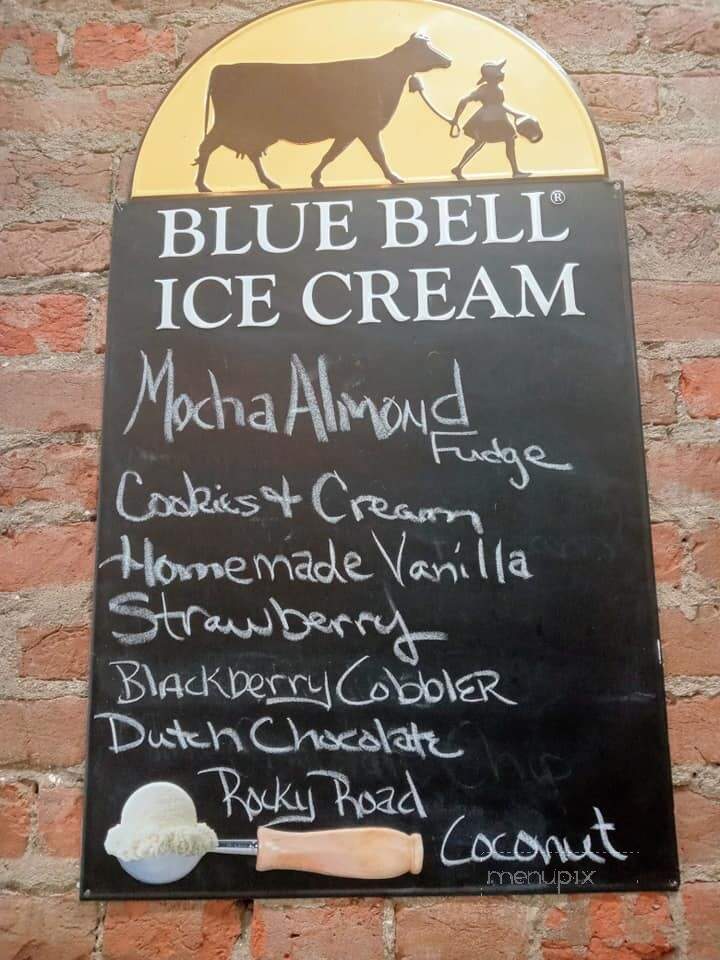 BLUE BELL®
ICE CREAM
Mocha Almond
Fudge
Cookies & Cream
Homemade Vanilla
Strawberry
Blackberry Cobbler
Dutch Chocolate
Rocky Road
Coconut
menupix